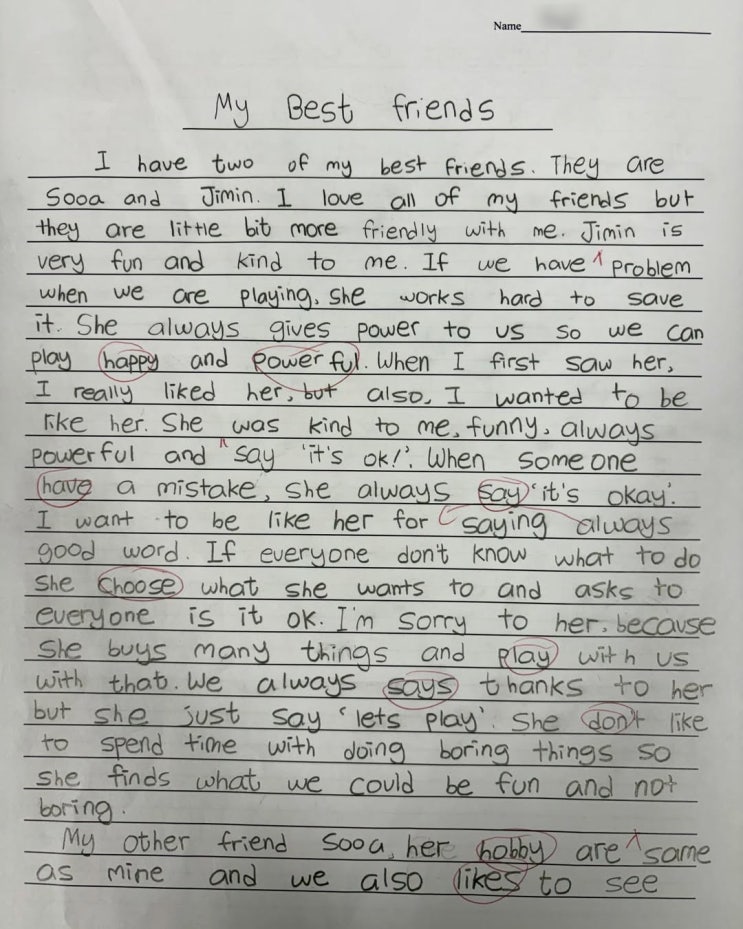 Name
My Best friends
I have two of my best friends. They are
Sooa and Jimin. I love all of my friends but
they are little bit more friendly with me. Jimin is
very fun and kind to me. If we have ^ problem
when we are playing, she works hard to save
it. She always gives power to us so we can
play happy and powerful. When I first saw her,
I really liked her, but also, I wanted to be
like her. She was kind to me, funny, always
powerful and ^ say 'it's ok!'. When someone
have a mistake, she always say 'it's okay'.
I want to be like her for saying always
good word. If everyone don't know what to do
she choose what she wants to and asks to
everyone is it ok. I'm sorry to her, because
she buys many things and play with us
with that. We always says thanks to her
but she just say 'lets play'. She don't like
to spend time with doing boring things so
she finds what we could be fun and not
boring.
My other friend Sooa, her hobby are ^ same
as mine and we also likes to see